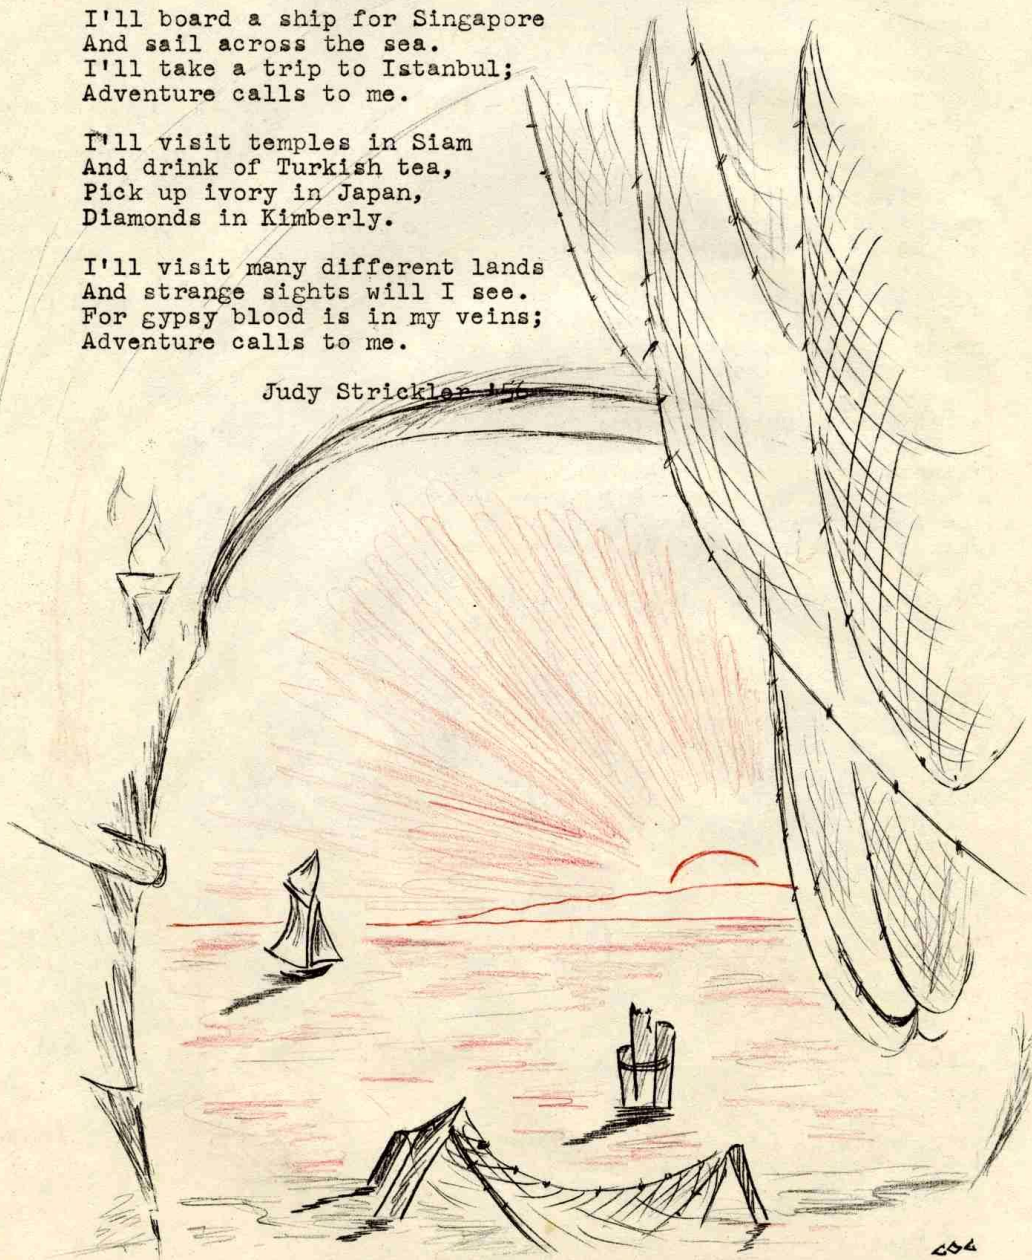 I'll board a ship for Singapore
And sail across the sea.
I'll take a trip to Istanbul;
Adventure calls to me.

I'll visit temples in Siam
And drink of Turkish tea,
Pick up ivory in Japan,
Diamonds in Kimberly.

I'll visit many different lands
And strange sights will I see.
For gypsy blood is in my veins;
Adventure calls to me.

Judy Strickler '56